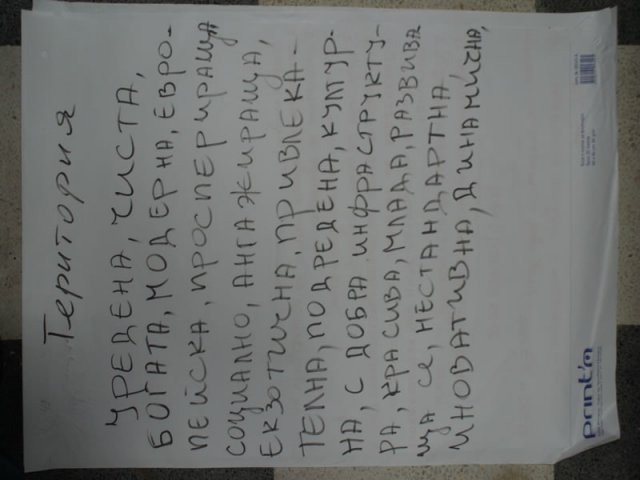 Територия
УРЕДЕНА, ЧИСТА,
БОГАТА, МОДЕРНА, ЕВРО-
ПЕЙСКА, ПРОСПЕРИРАЩА
СОЦИАЛНО, АНГАЖИРАЩА,
ЕКЗОТИЧНА, ПРИВЛЕКА-
ТЕЛНА, ПОДРЕДЕНА, КУЛТУР-
НА, С ДОБРА ИНФРАСТРУКТУ-
РА, КРАСИВА, МЛАДА, РАЗВИВА
ЩА СЕ, НЕСТАНДАРТНА
ИНОВАТИВНА, ДИНАМИЧНА,
print'm